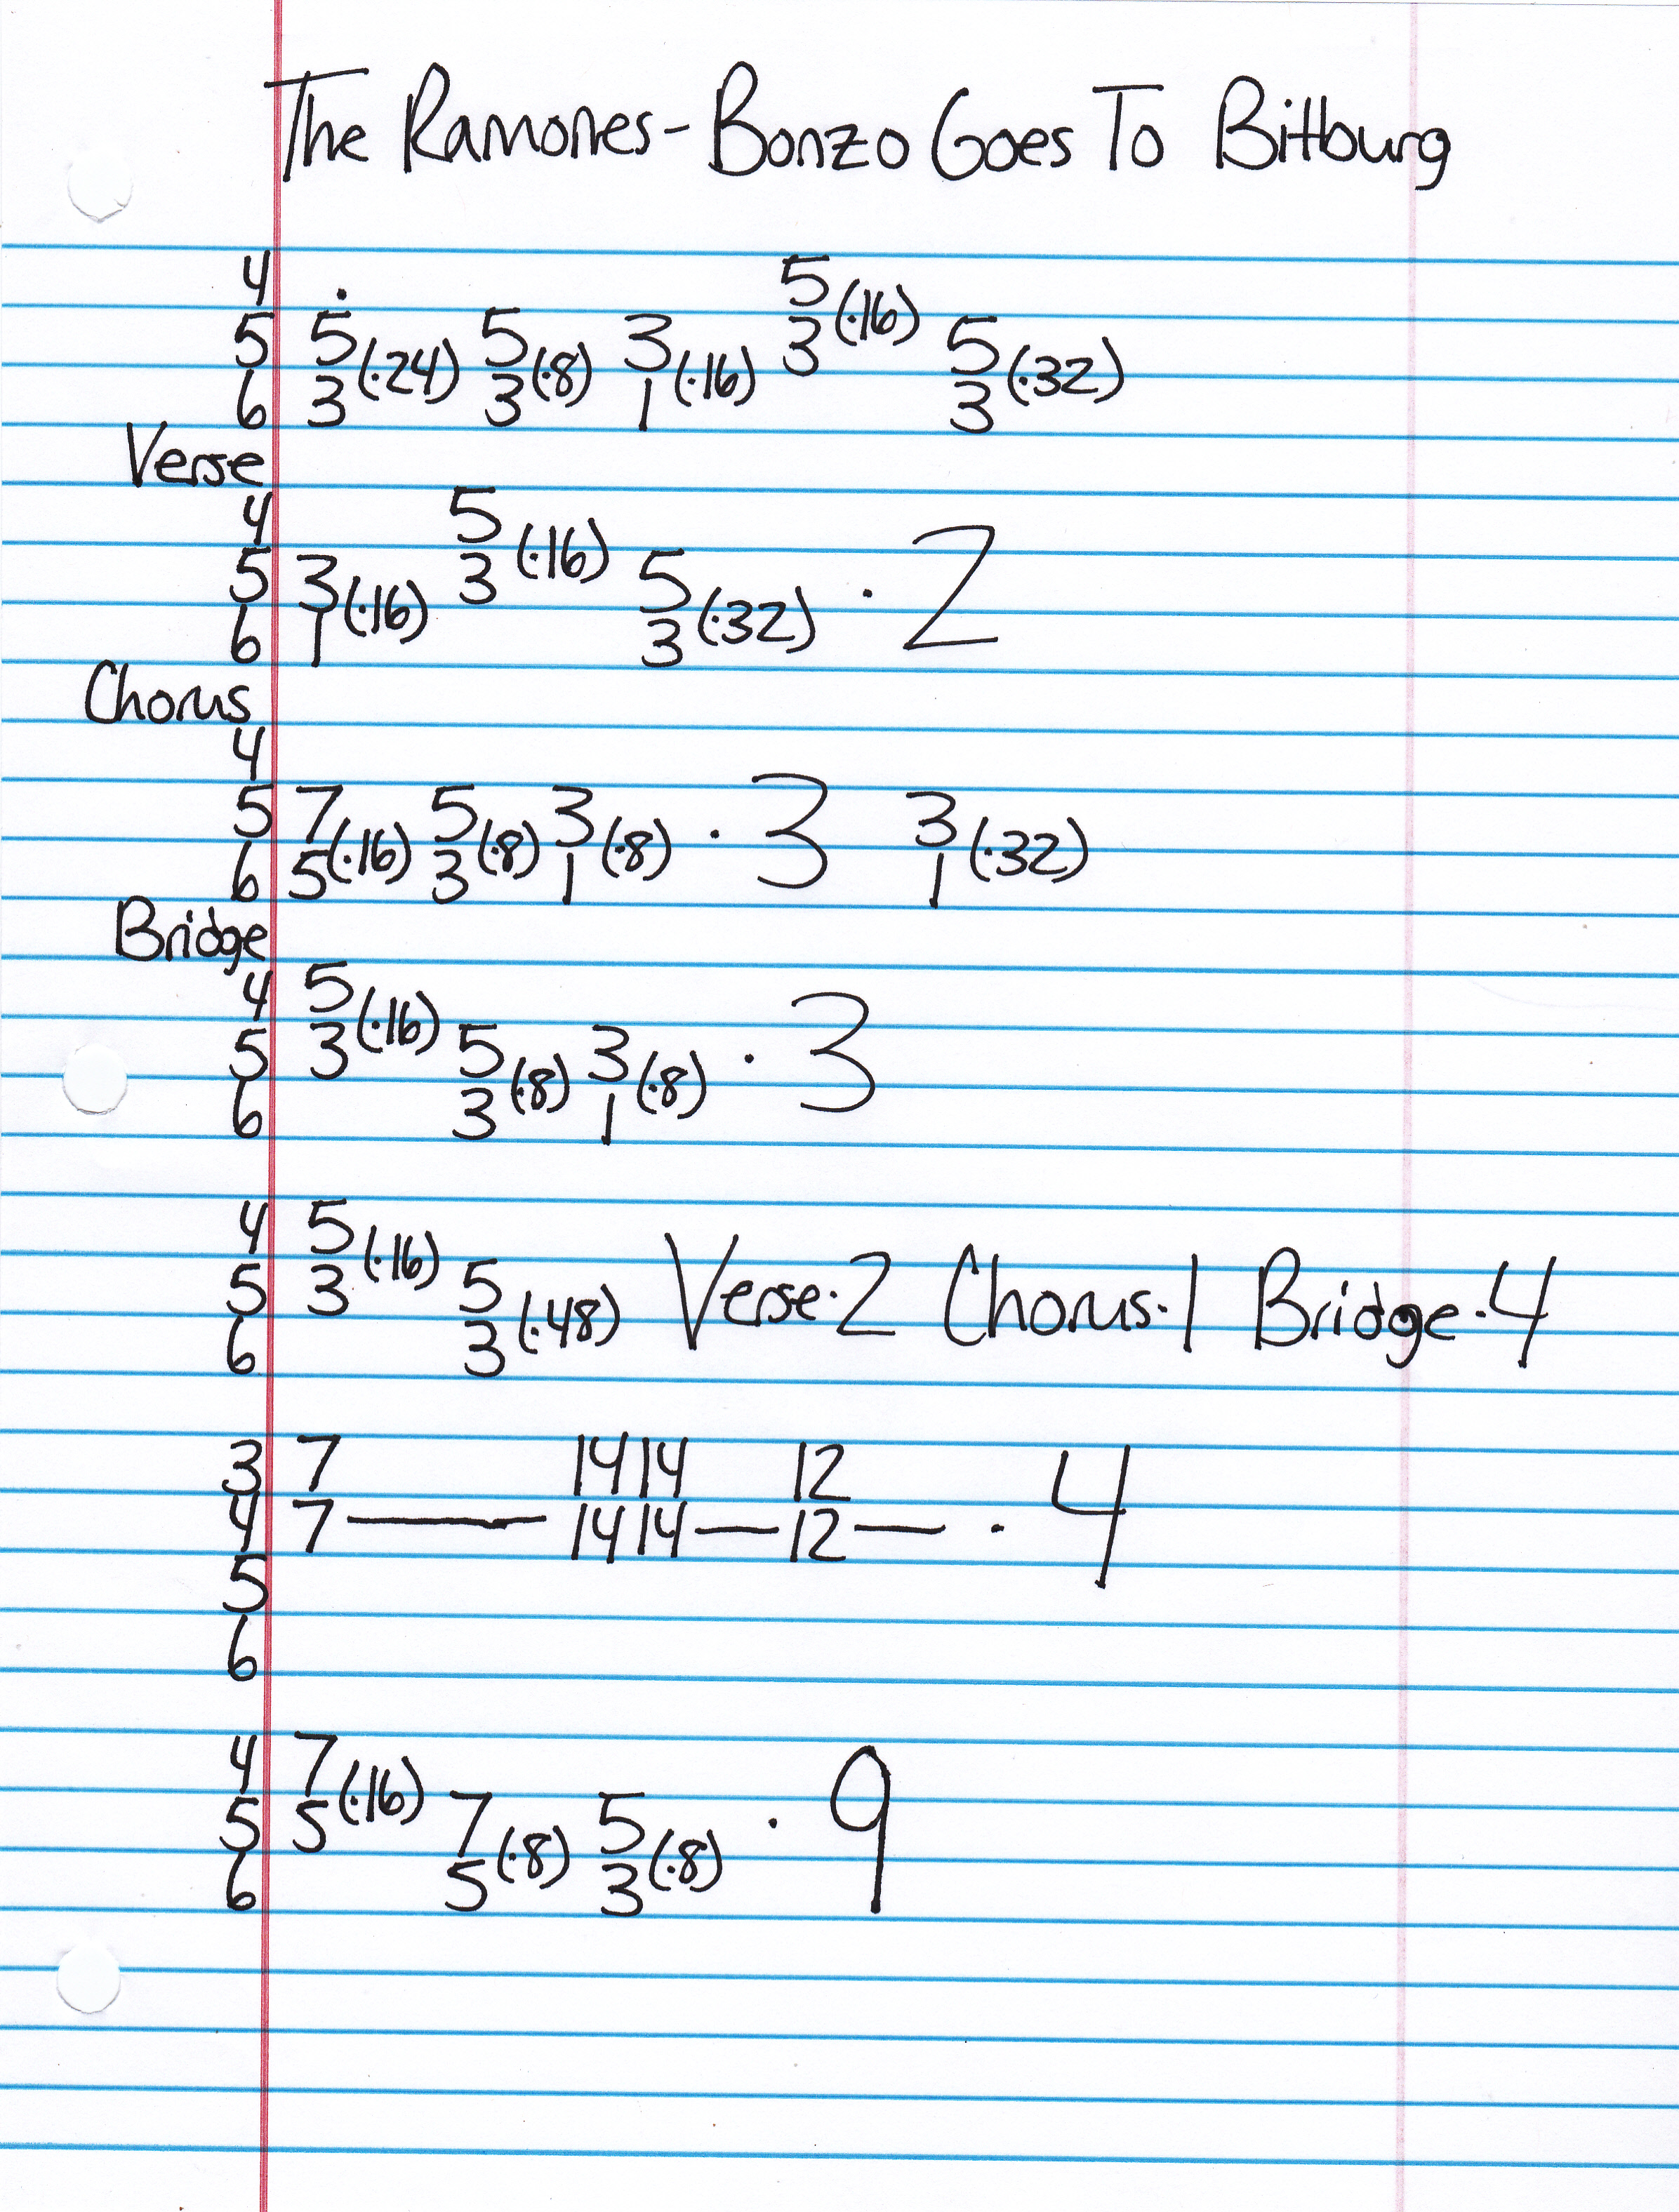 The Ramones - Bonzo Goes To Bitburg
4 5(·16)
5 5(·24) 5(·8) 3(·16) 3 5(·32)
6 3 3 1 3
Verse
4 5(·16)
5 3(·16) 3 5(·32) · 2
6 1 3
Chorus
4
5 7(·16) 5(·8) 3(·8) · 3 3(·32)
6 5 3 1 1
Bridge
4 5(·16)
5 3 5(·8) 3(·8) · 3
6 3 1
4 5(·16)
5 3 5(·48) Verse·2 Chorus·1 Bridge·4
6 3
3 7 14 14 12
4 7 — 14 14 — 12 — · 4
5
6
4 7(·16)
5 5 7(·8) 5(·8) · 9
6 5 3